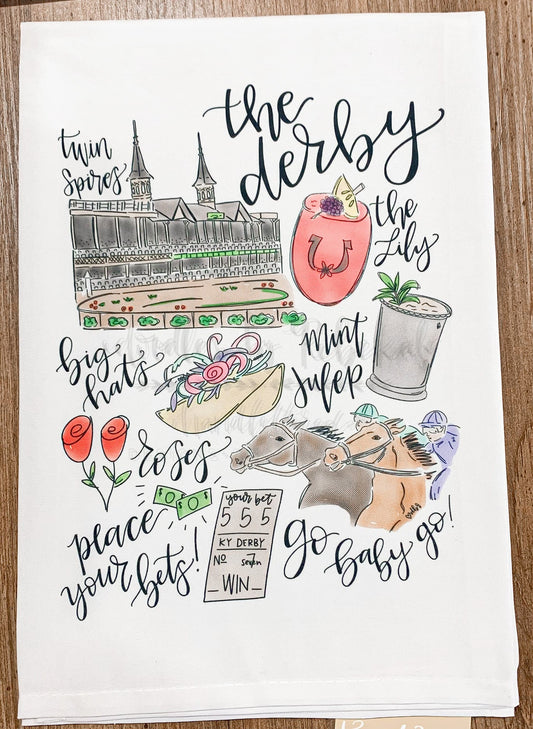 the
derby
twin
Spires
the
Lily
big
hats
mint
Julep
roses
place
your
bets!
your bet
5 5 5
KY DERBY
Nº seven
7
_ WIN _
go
baby
go!